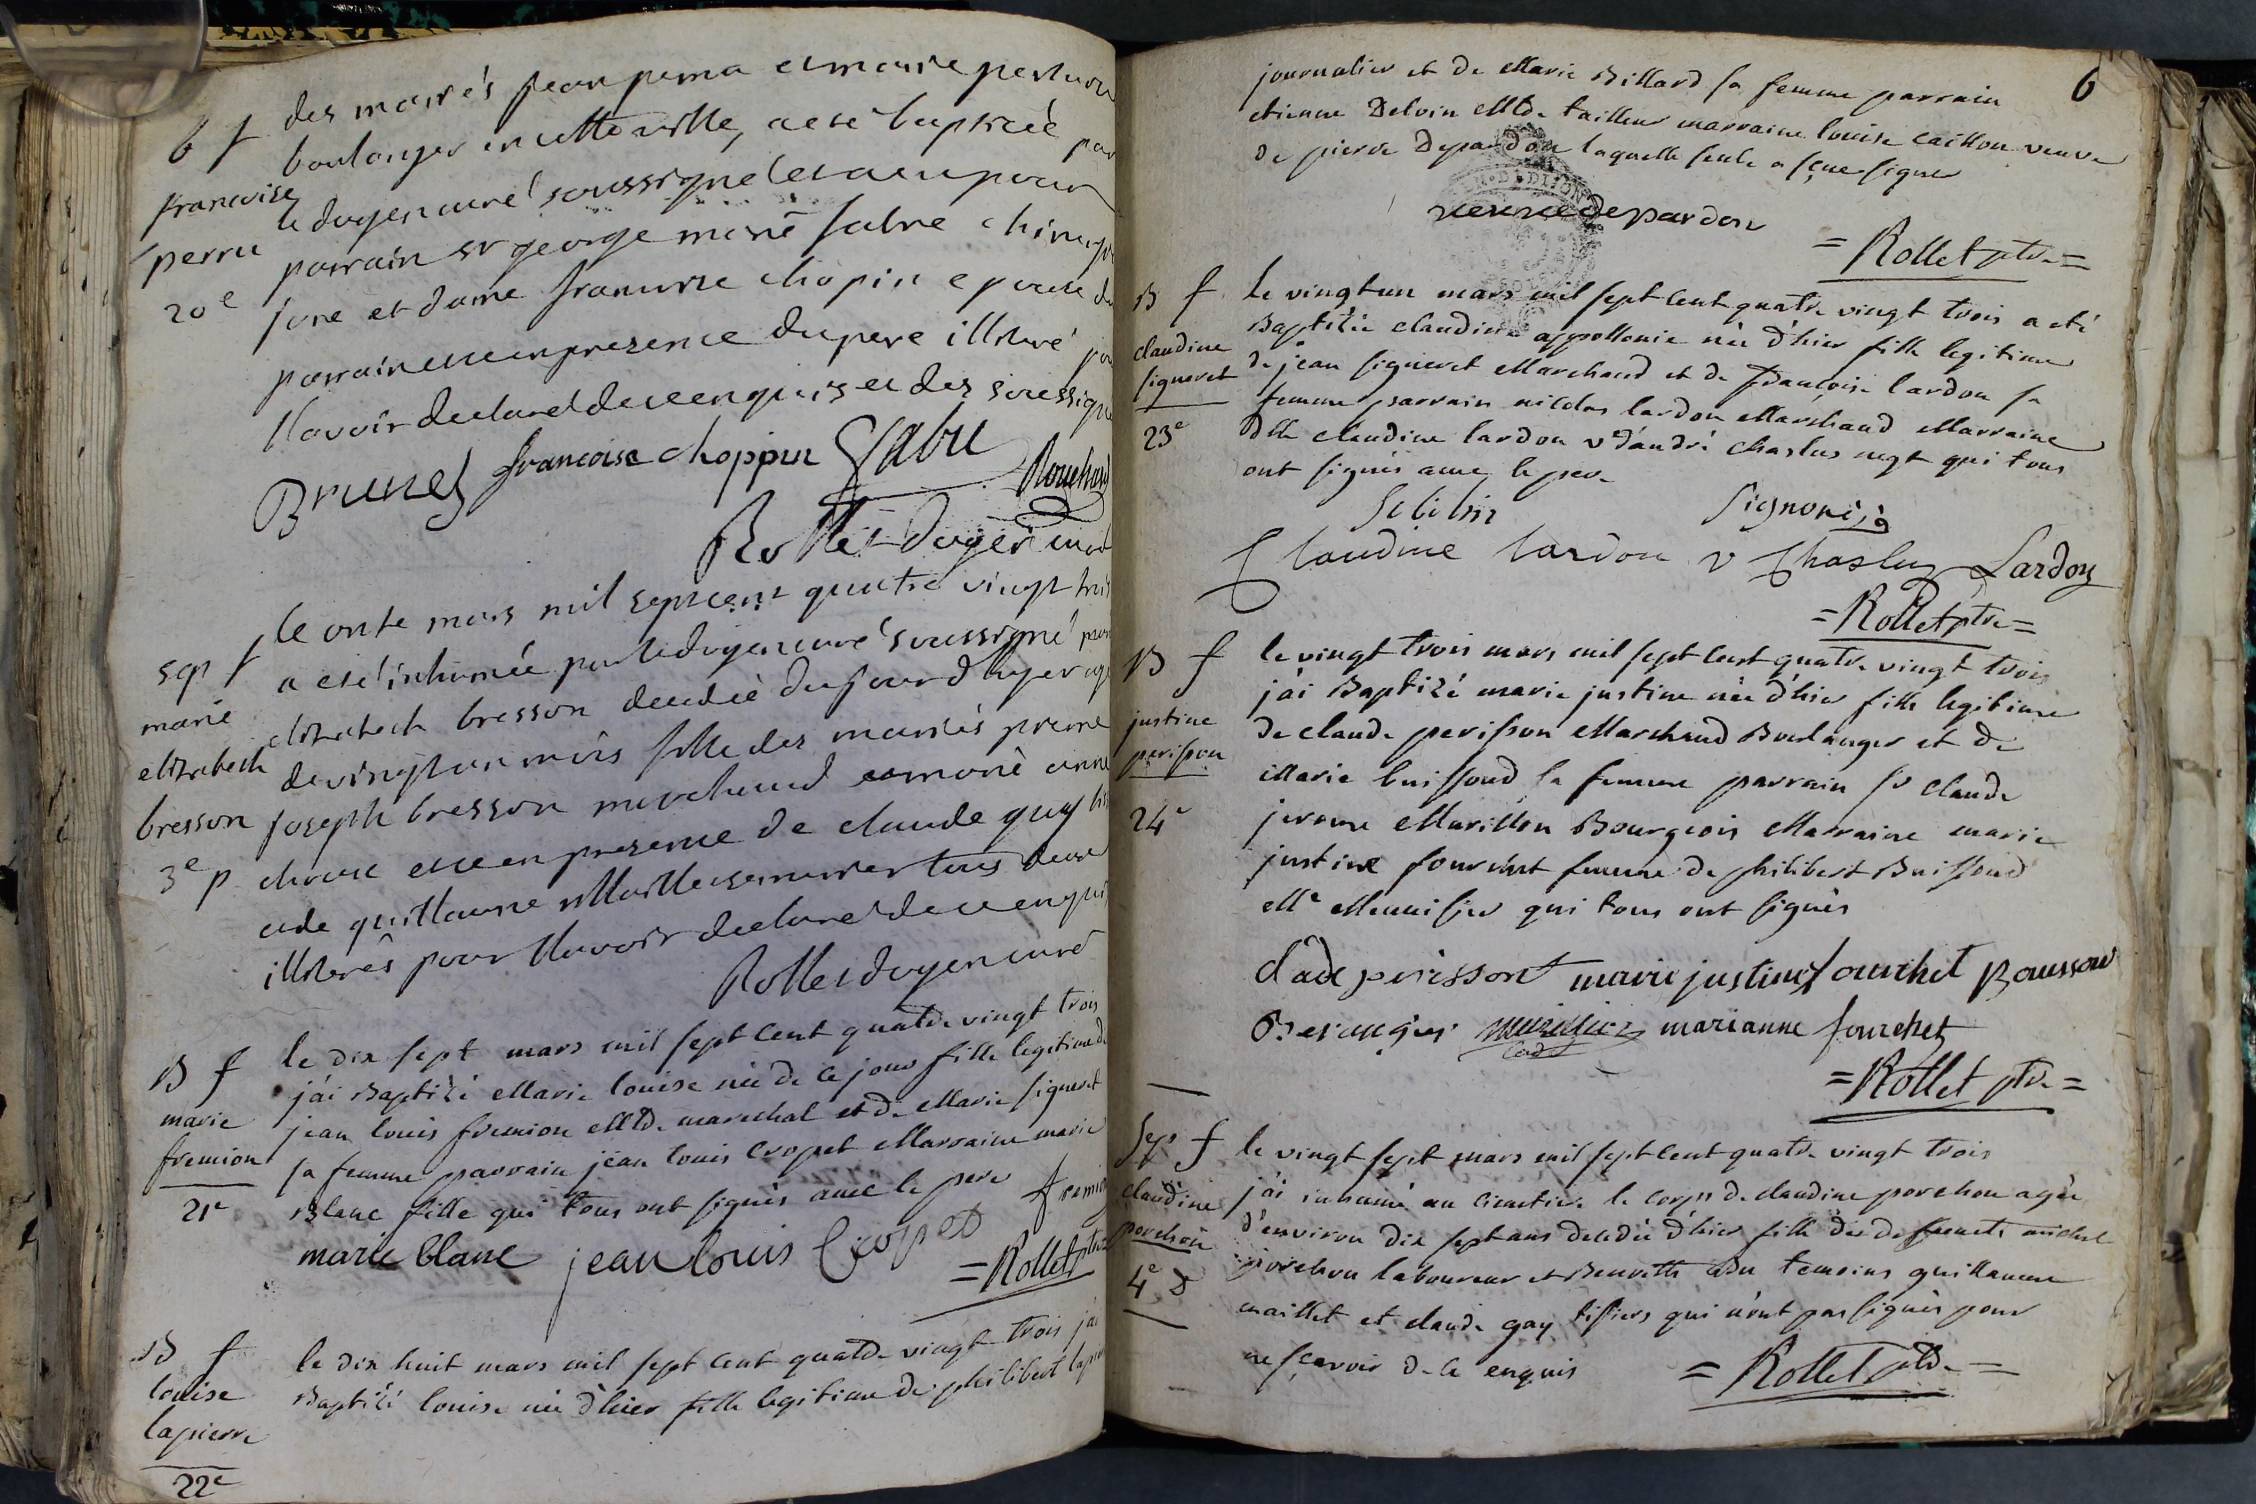 des mariés jean perra et marie
b f boulanger en cette ville, a eté baptisée par
francoise le doyen curé soussigné et a eu pour
perra parrain sr george fabre chirurgien
20e juré et dame francoise chopin epouse du
parrain et ce en presence du pere illitéré pour
l'avoir declaré de ce enquis et des soussignés
Brunet francoise choppin Gfabre Rouchard
Rollet doyen curé
le onse mars mil sept cent quatre vingt trois
sep f a eté inhumée par le doyen curé soussigné marie
marie elizabeth bresson decedée du jour d'hyer agée
elizabeth de vingt un mois fille des mariés pierre
bresson joseph bresson marchand et marie anne
3e p et ce en presence de claude guy
et de guillaume Maillet tous deux
illiterés pour l'avoir declaré de ce enquis
Rollet doyen curé
le dix sept mars mil sept cent quatre vingt trois
B f j'ai Baptizé Marie louise née de ce jour fille legitime de
marie jean louis fremion Md marechal et de Marie signeret
fremion sa femme parrain jean louis cropet Marraine marie
21e Blanc fille qui tous ont signés avec le pere fremion
marie blanc jean louis Cropet
=Rollet ptre
B f le dix huit mars mil sept cent quatre vingt trois j'ai
louise Baptizé louise née d'hier fille legitime de philibert lapierre
lapierre
22e
6
journalier et de Marie Billard sa femme parrain
etienne Deloin Md tailleur marraine louise caillou veuve
de pierre Depardon laquelle seule a sçue signer
veuve depardon
=Rollet ptre=
B f le vingt un mars mil sept cent quatre vingt trois a eté
Baptizée claudine appollonie née d'hier fille legitime
claudine de jean signeret Marchand et de francoise lardon sa
signeret femme parrain nicolas lardon Marchand Marraine
23e Dlle claudine lardon ve d'andré chaslus negt qui tous
ont signés avec le pere
Claudine lardon v Chaslus Lardon
=Rollet ptre=
B f le vingt trois mars mil sept cent quatre vingt trois
j'ai Baptizé marie justine née d'hier fille legitime
justine de claude perisson Marchand Boulanger et de
perisson Marie buissond sa femme parrain sr claude
24e jerome Bourgeois Marraine marie
justine fourchet femme de philibert Buissond
Me Menuisier qui tous ont signés
Clade perisson marie justine fourchet Boussou
marianne fourchet
=Rollet ptre=
Sep f le vingt sept mars mil sept cent quatre vingt trois
claudine j'ai inhumé au cimetiere le corps de claudine porchon agée
porchon d'environ dix sept ans decedée d'hier fille des defunts michel
4e D porchon laboureur et Benoitte temoins guillaume
maillet et claude gay tissiers qui n'ont pas signés pour
ne sçavoir de ce enquis =Rollet ptre=